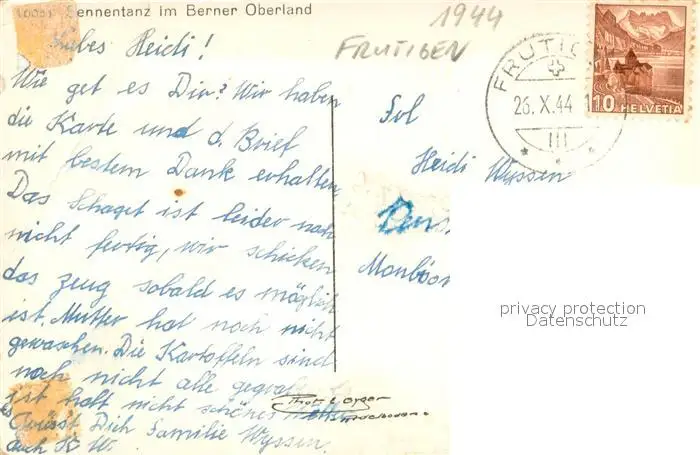 Sennentanz im Berner Oberland
1944
FRUTIGEN
Liebes Heidi!
Wie get es Dir? Wir haben
die Karte und d. Brief
mit bestem Dank erhalten
Das Schaget ist leider noch
nicht fertig, wir schicken
das zeug sobald es möglich
ist. Mutter hat noch nicht
gewaschen. Die Kartoffeln sind
noch nicht alle
ist halt nicht schönes
Grüsst Dich Familie Wyssen.
auch K. W.
FRUTIG
26. X. 44
III
10 HELVETIA
Frl
Heidi Wyssen
Pens.
privacy protection
Datenschutz